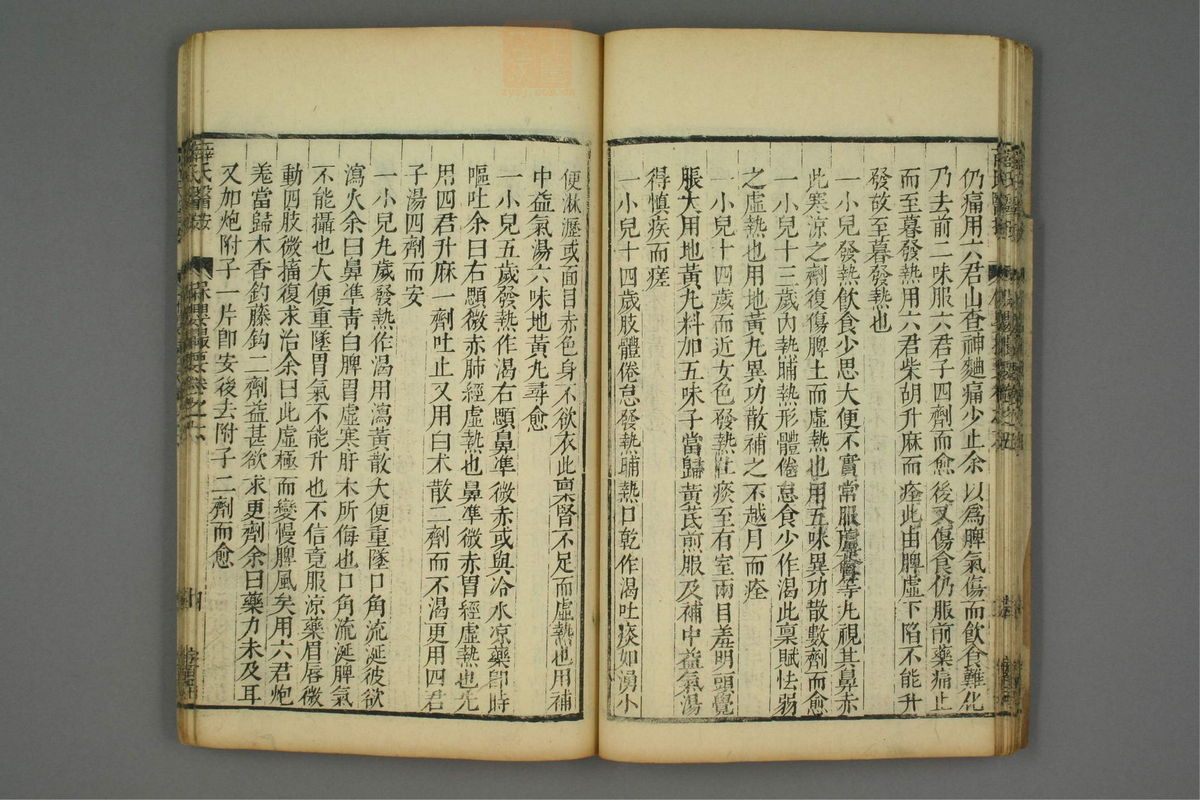 仍痛用六君山查神麯痛少止余以爲脾氣傷而飲食難化
乃去前二味服六君子四劑而愈後又傷食仍服前藥痛止
而至暮發熱用六君柴胡升麻而痊此由脾虛下陷不能升
發故至暮發熱也
一小兒發熱飲食少思大便不實常服蘆薈等丸視其鼻赤
此寒涼之劑復傷脾土而虛熱也用五味異功散數劑而愈
一小兒十三歲內熱晡熱形體倦怠食少作渴此稟賦怯弱
之虛熱也用地黃丸異功散補之不越月而痊
一小兒十四歲而近女色發熱吐痰至有室兩目羞明頭覺
脹大用地黃丸料加五味子當歸黃芪煎服及補中益氣湯
得愼疾而瘥
一小兒十四歲肢體倦怠發熱晡熱口乾作渴吐痰如湧小
便淋瀝或面目赤色身不欲衣此稟腎不足而虛熱也用補
中益氣湯六味地黃丸尋愈
一小兒五歲發熱作渴右顋鼻準微赤或與冷水涼藥卽時
嘔吐余曰右顋微赤肺經虛熱也鼻準微赤胃經虛熱也先
用四君升麻一劑吐止又用白朮散二劑而不渴更用四君
子湯四劑而安
一小兒九歲發熱作渴用瀉黃散大便重墜口角流涎彼欲
瀉火余曰鼻準靑白脾胃虛寒肝木所侮也口角流涎脾氣
不能攝也大便重墜胃氣不能升也不信竟服涼藥眉唇微
動四肢微搐復求治余曰此虛極而變慢脾風矣用六君炮
羌當歸木香釣藤鈎二劑益甚欲求更劑余曰藥力未及耳
又加炮附子一片卽安後去附子二劑而愈
薛氏醫按
保嬰撮要卷之六